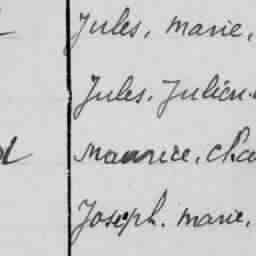 Jules, Marie,
Jules, Julien
Maurice, Cha
Joseph, Marie,